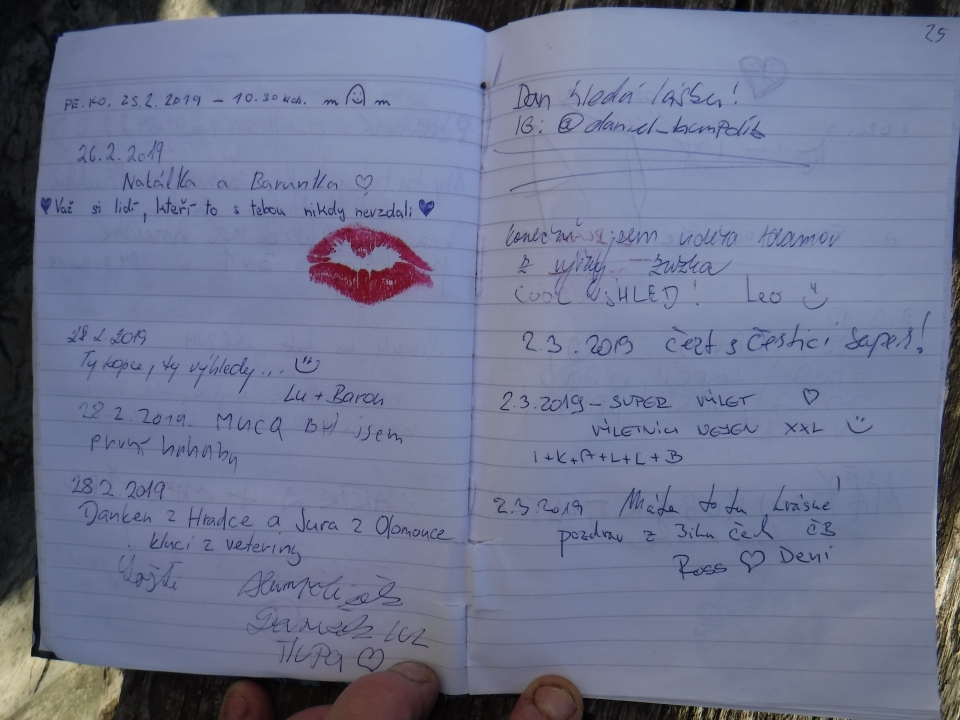 PE.KO, 25.2. 2019 – 10.30 hod. m m
26.2.2019
Natálka a Barunka ♡
♥ Važ si lidí, kteří to s tebou nikdy nevzdali ♥
28.2.2019
Ty kopce, ty výhledy...
Lu + Baron
28.2.2019. MUCA BH jsem
první
28.2.2019
Danken z Hradce a Jura z Olomouce
kluci z veteriny
ŤLUPA ♡
25
Dan hledá lásku!
IG:
Konečně jsem viděla Adamov
z výšky Zuzka
COOL VÝHLED! Leo
2.3.2019 čert s čerticí super!
2.3.2019 – SUPER VÝLET ♡
VÝLETNÍCI XXL
I+K+A+L+L+B
2.3.2019 Máte to tu krásné!
pozdrav z Jihu Čech ČB
Ross ♡ Deni